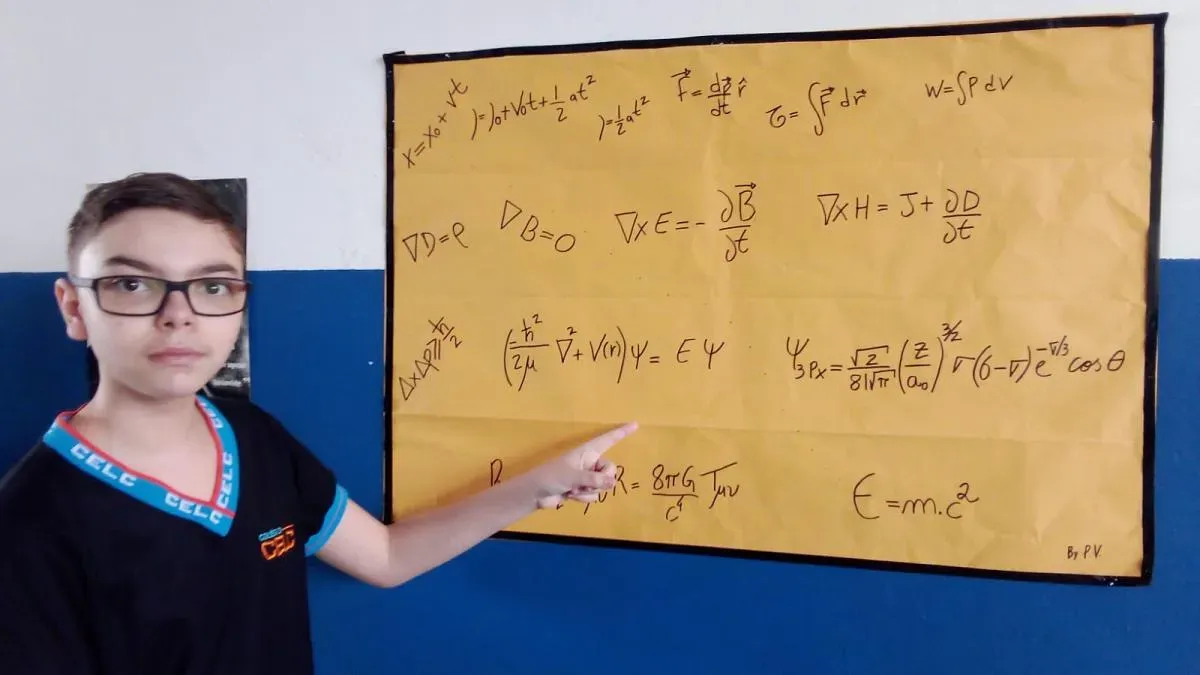 x = x₀ + vt
) = )₀ + v₀t + 1/2 at²
) = 1/2 at²
F⃗ = dp⃗/dt r̂
τ = ∫F⃗ dr⃗
W = ∫P dV
∇D = ρ
∇B = 0
∇x E = - ∂B⃗/∂t
∇x H = J + ∂D/∂t
ΔxΔp ħ/2
(-ħ²/2μ ∇² + V(r))ψ = E ψ
ψ₃Px = √2/81√π (Z/a₀)^3/2 σ(6-σ)e^-σ/3 cos θ
R = 8πG/c⁴ Tμν
E = m.c²
By P.V.
CELC
CELC
CELC
COLÉGIO
CELC